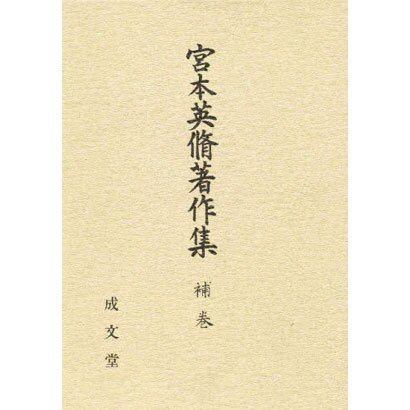 宮本英脩著作集
補巻
成文堂